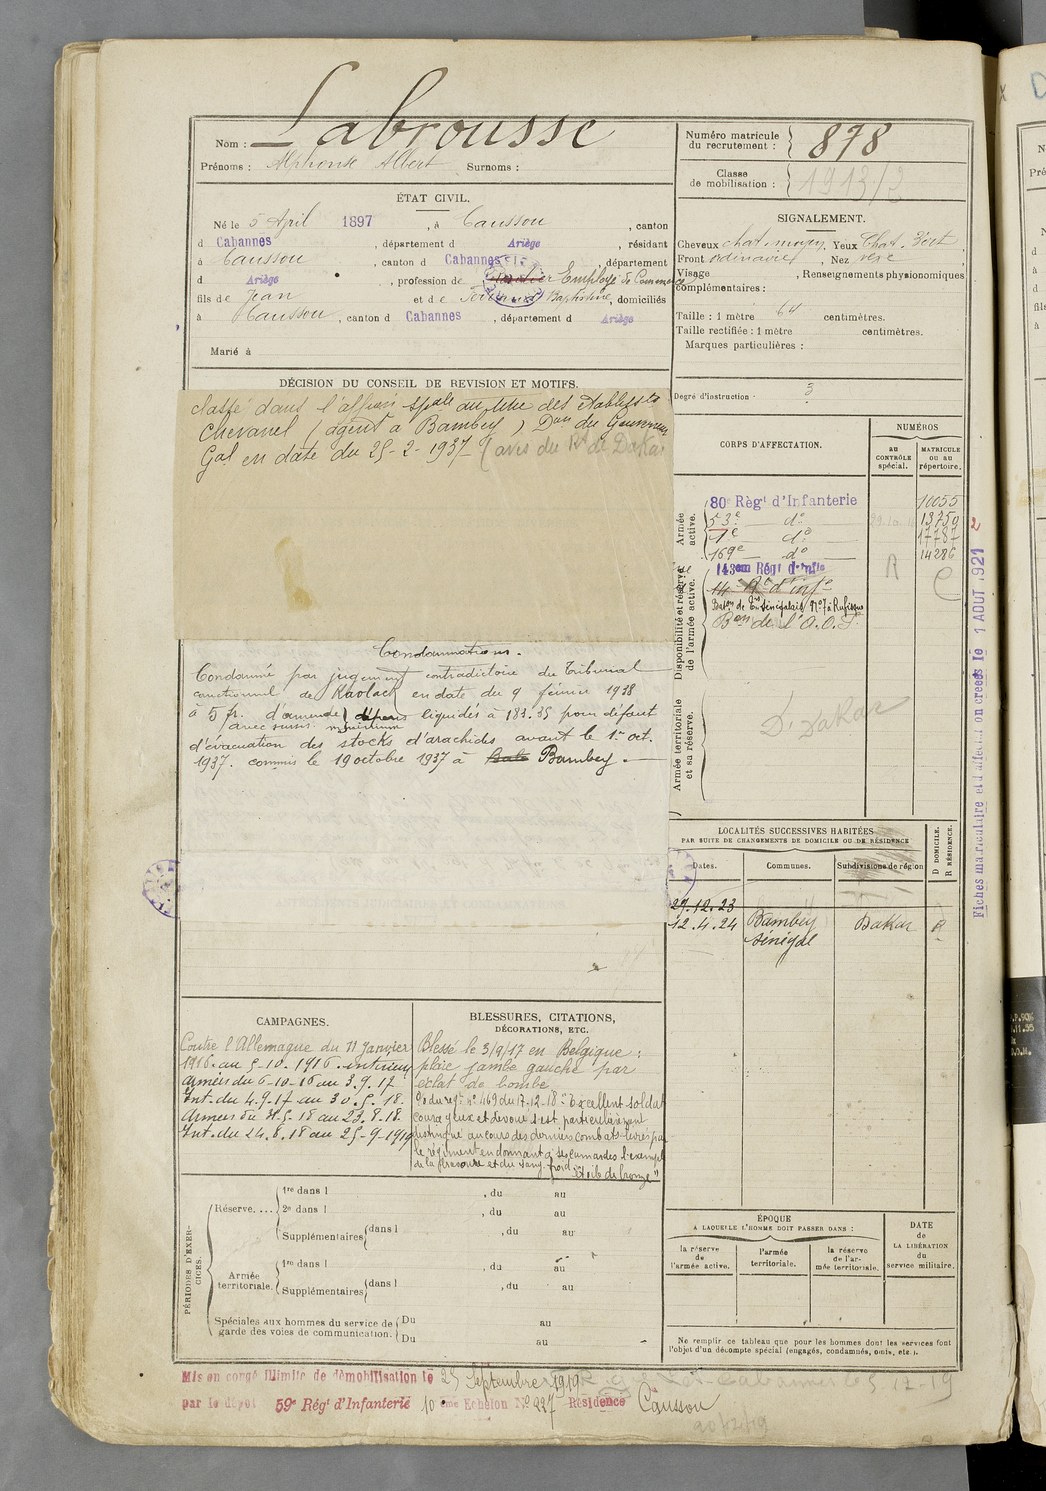 Nom : Labrousse
Prénoms : Alphonse Albert Surnoms :
Numéro matricule
du recrutement : 878
Classe
de mobilisation : 1913/2
ÉTAT CIVIL.
Né le 5 April 1897, à Caussou, canton
d Cabannes, département d Ariège, résidant
à Caussou, canton d Cabannes, département
d Ariège, profession de Employé de Commerce
fils de Jean et de Baptistine, domiciliés
à Caussou, canton d Cabannes, département d Ariège
Marié à
SIGNALEMENT.
Cheveux chat. moyen Yeux Chat. Vert
Front ordinaire, Nez
Visage , Renseignements physionomiques
complémentaires :
Taille : 1 mètre 64 centimètres.
Taille rectifiée : 1 mètre centimètres.
Marques particulières :
Degré d'instruction : 3
DÉCISION DU CONSEIL DE REVISION ET MOTIFS.
Classé dans l'affon spale au titre des Etablissts
Chavanel (agent à Bambey) Don du Gouverneur
Gal en date du 25-2-1937 (avis du Rt de Dakar
Condamnations.
Condamné par jugement contradictoire du Tribunal
correctionnel de Kaolack en date du 9 février 1938
à 5 fr. d'amende dépens liquidés à 183.35 pour défaut
avec sursis minimum
d'évacuation des stocks d'arachides avant le 1er oct.
1937. commis le 19 octobre 1937 à Bambey.
CORPS D'AFFECTATION.
NUMÉROS
au
CONTRÔLE
spécial.
MATRICULE
ou au
répertoire.
Armée
active.
80e Régt d'Infanterie 10055
53e do 13750
1e do 17787
169e do 14286
Disponibilité et réserve
de l'armée active.
143em Régt d'Infie
14e Rt d'infie
Baton de Tirs Sénégalais No 7 à Rufisque
Bon de l'A.O.F.
R
C
Armée territoriale
et sa réserve.
D. Dakar
Fiches matriculaire et d'affectation créées le 1 AOUT 1921
2
LOCALITÉS SUCCESSIVES HABITÉES
PAR SUITE DE CHANGEMENTS DE DOMICILE OU DE RÉSIDENCE
D DOMICILE.
R RÉSIDENCE.
Dates. Communes. Subdivisions de région
29.12.23
12.4.24 Bambey Dakar R
Sénégal
CAMPAGNES.
Contre l'Allemagne du 11 Janvier
1916 au 5-10-1916 intérieur
Armées du 6-10-16 au 3.9.17
Int. du 4.9.17 au 30.5.18.
Armées du 31-5-18 au 23.8.18.
Int. du 24.8.18 au 25-9-1919
BLESSURES, CITATIONS,
DÉCORATIONS, ETC.
Blessé le 3/9/17 en Belgique :
plaie jambe gauche par
éclat de bombe
O/ du regt no 469 du 17-12-18 "Excellent soldat
courageux et dévoué s'est particulièrement
distingué au cours des derniers combats livrés par
le régiment en donnant à ses camarades l'exemple
de la bravoure et du sang froid"
Etoile de bronze"
PÉRIODES D'EXERCICES.
Réserve....
1re dans l , du au
2e dans l , du au
Supplémentaires dans l , du au
Armée
territoriale.
1re dans l , du au
Supplémentaires dans l , du au
Spéciales aux hommes du service de
garde des voies de communication.
Du au
Du au
ÉPOQUE
À LAQUELLE L'HOMME DOIT PASSER DANS :
la réserve
de
l'armée active.
l'armée
territoriale.
la réserve
de l'ar-
mée territoriale.
DATE
de
LA LIBÉRATION
du
service militaire.
Ne remplir ce tableau que pour les hommes dont les services font
l'objet d'un décompte spécial (engagés, condamnés, omis, etc.).
Mis en congé illimité de démobilisation le 25 Septembre 1919
par le dépôt 59e Régt d'Infanterie 10ème Echelon No 227 Résidence Caussou
Les Cabannes le 5-12-19